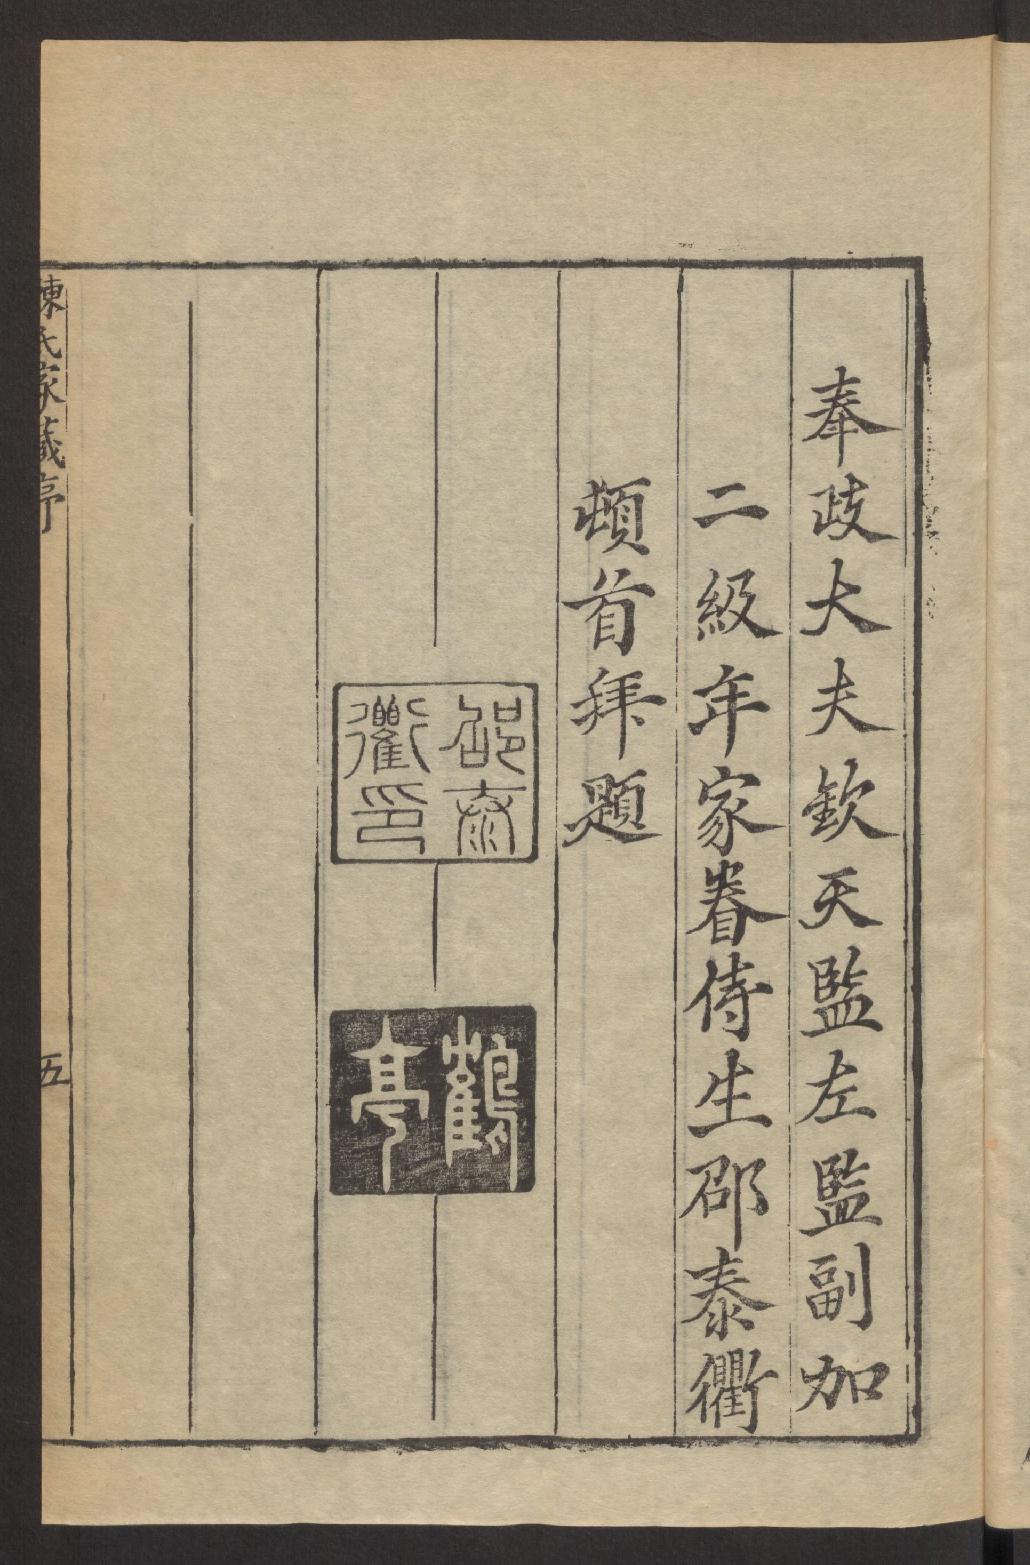 奉政大夫欽天監左監副加
二級年家眷侍生邵泰衢
頓首拜題
邵泰
衢印
鶴
亭
陳氏家藏
五